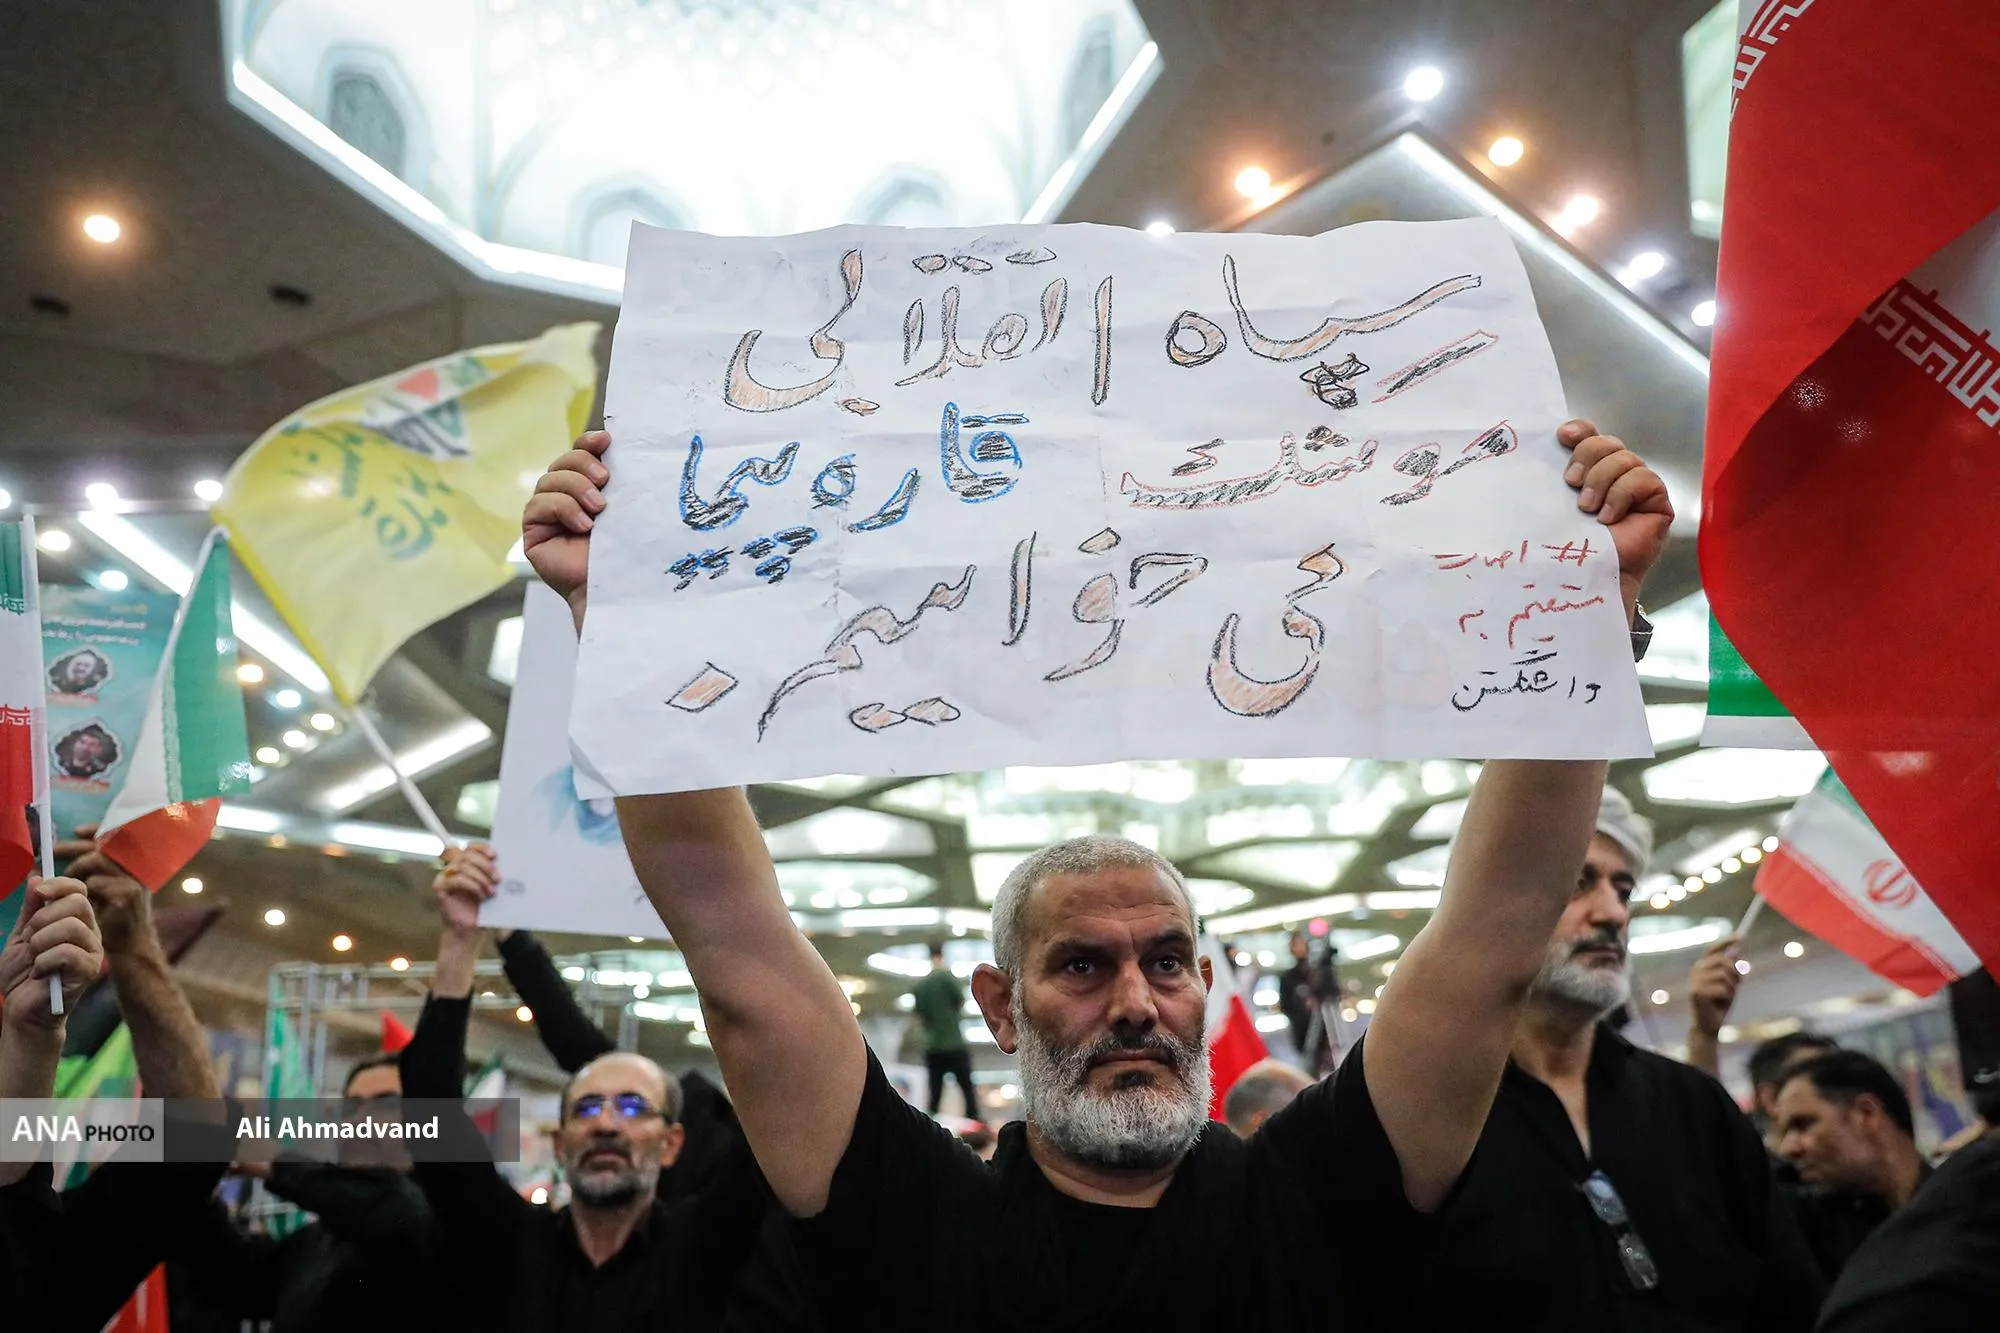 سپاه انقلابی
موشک قاره پیما
می خواهیم.
# اصابت
مستقیم به
واشنگتن
ANA PHOTO
Ali Ahmadvand